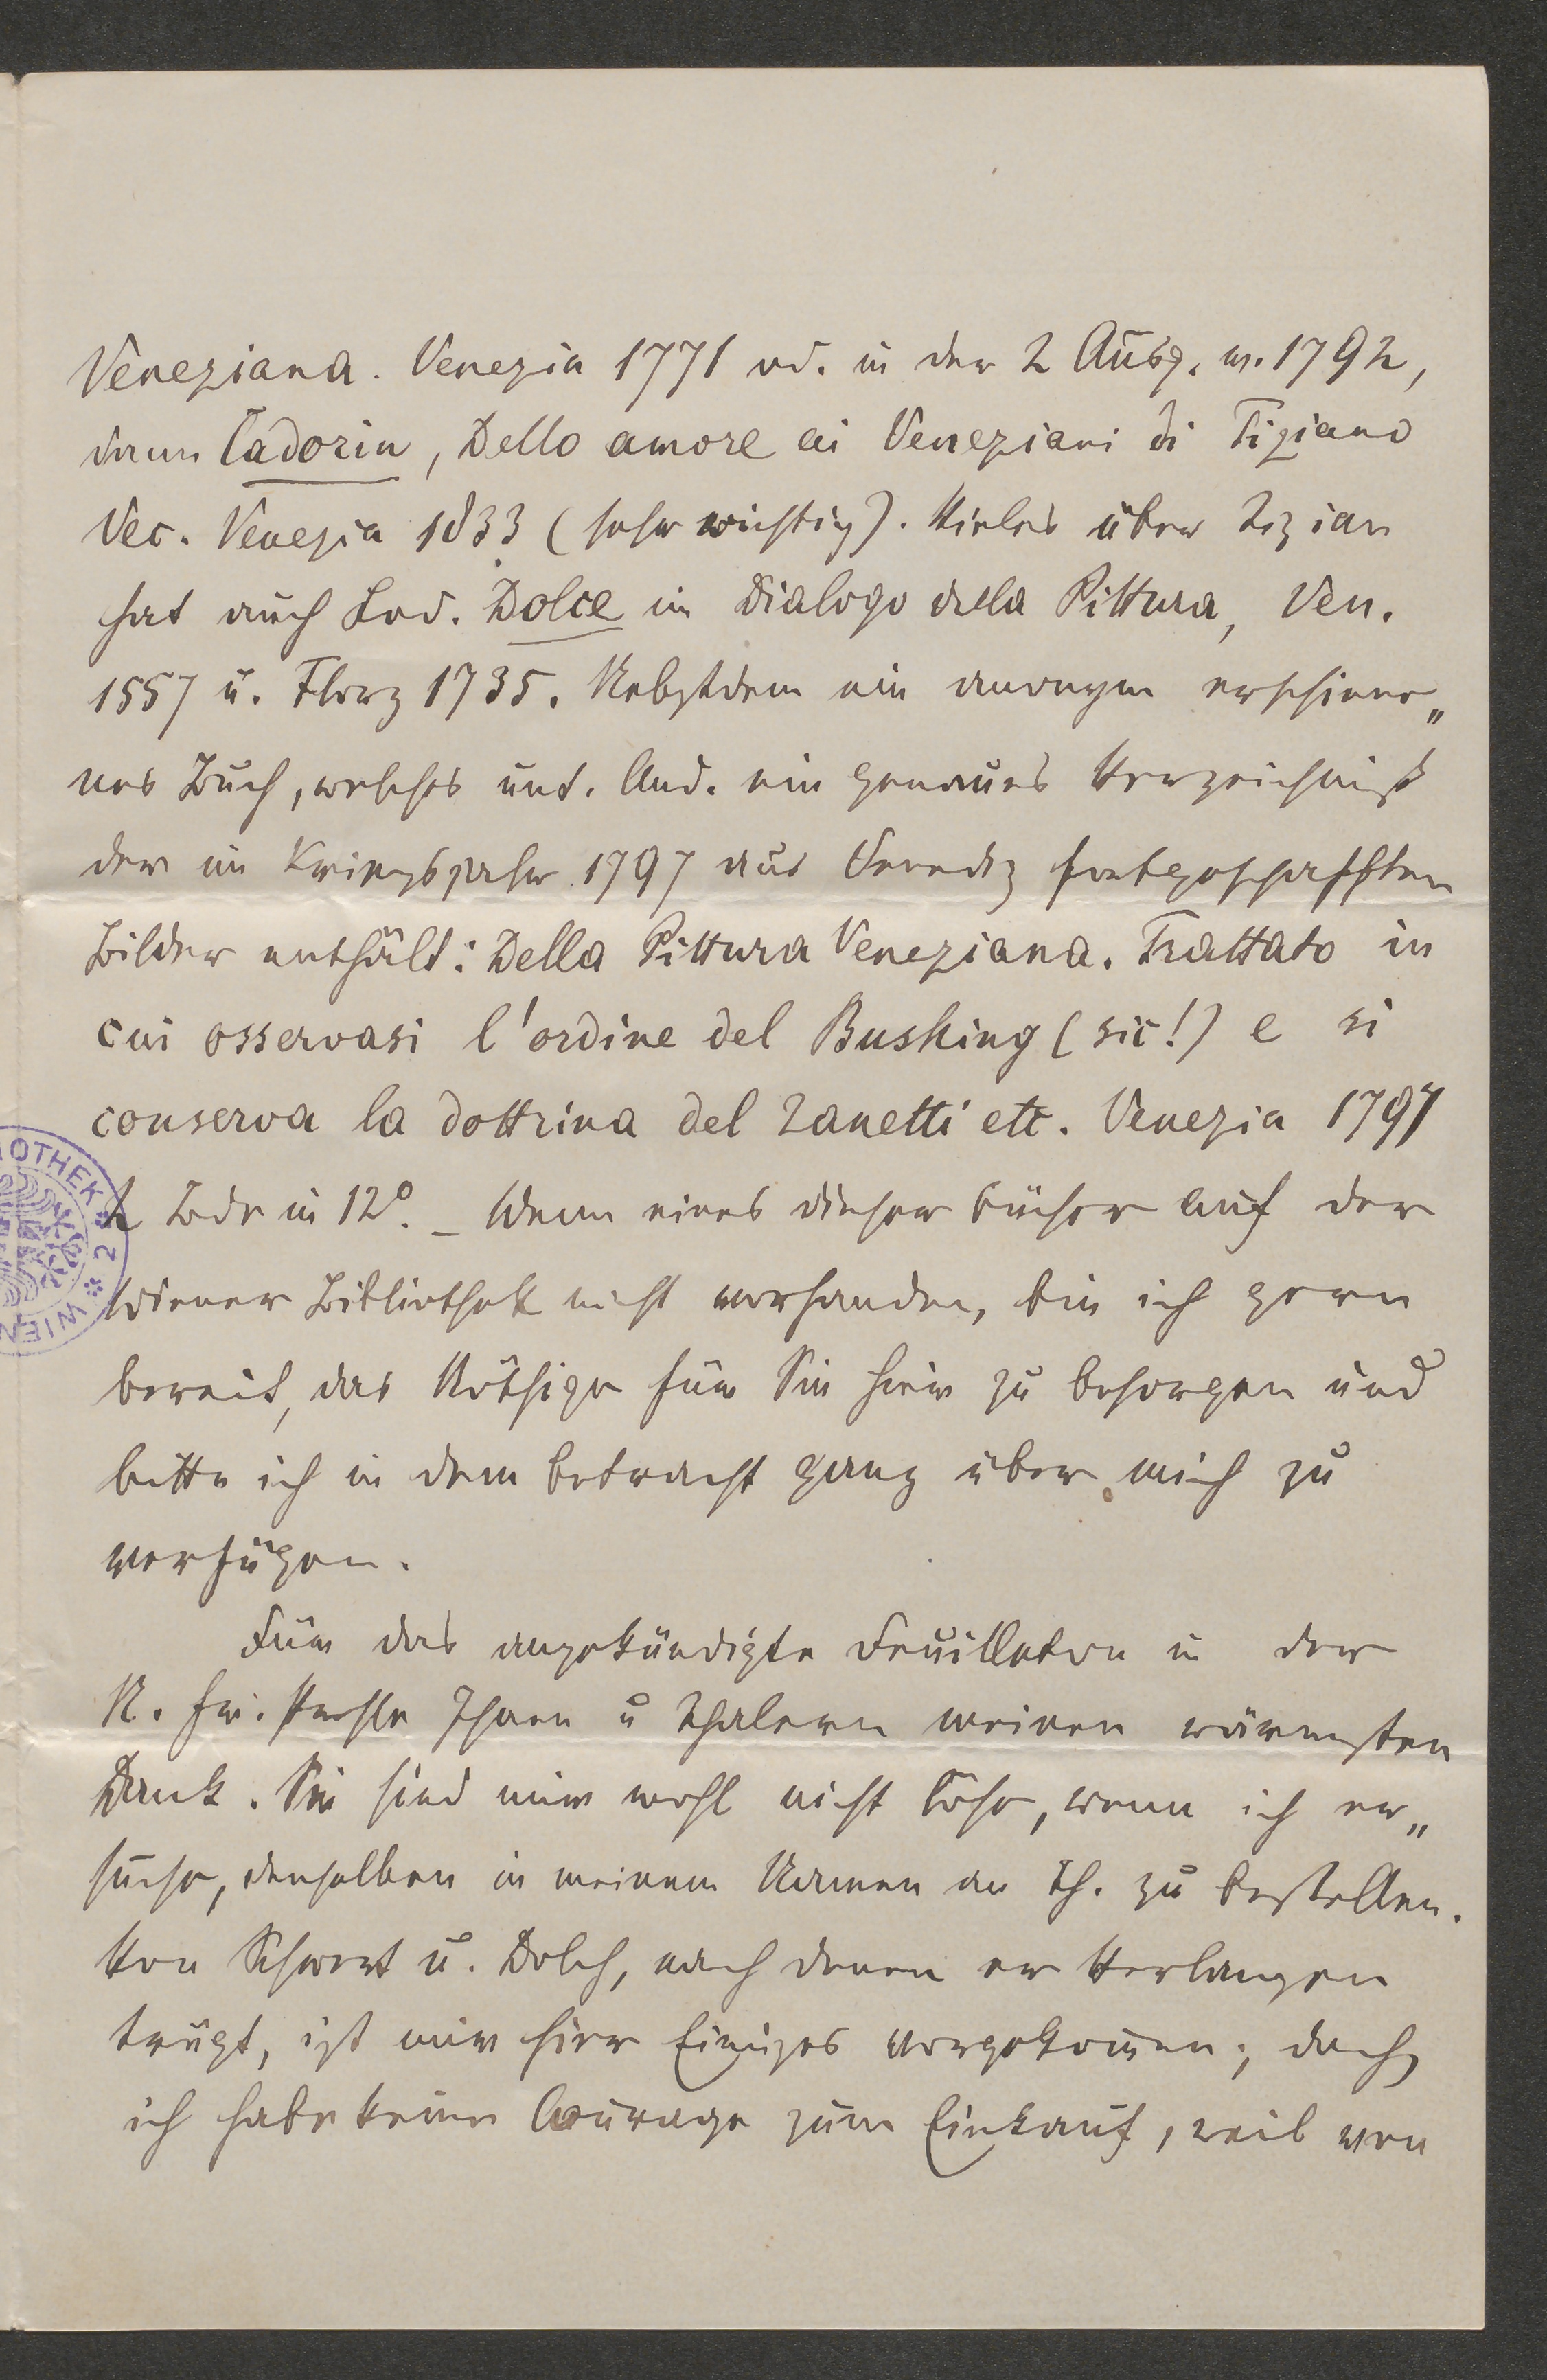 Veneziana. Venezia 1771 od. in der 2 Ausg. v. 1792,
dann Cadorin, Dello amore ai Veneziani di Tiziano
Vec. Venezia 1833 (sehr wichtig). Vieles über Tizian
hat auch Lod. Dolce im Dialogo della Pittura, Ven.
1557 u. Florz 1735. Nebstdem ein anonym erschiene„
nes Buch, welches unt. And. ein genaues Verzeichniß
der im Kriegsjahr 1797 aus Venedig fortgeschafften
Bilder enthält: Della Pittura Veneziana. Trattato in
cui osservasi l'ordine del Busking (sic!) e si
conserva la dottrina del Zanetti etc. Venezia 1797
2 Bde in 12º. – Wenn eines dieser Bücher auf der
Wiener Bibliothek nicht vorhanden, bin ich gern
bereit, das Nöthige für Sie hier zu besorgen und
bitte ich in dem Betracht ganz über mich zu
verfügen.
Für das angekündigte Feuilleton in der
N. fr. Presse Ihnen u Thalern meinen wärmsten
Dank. Sie sind mir wohl nicht böse, wenn ich er„
suche, denselben in meinem Namen an Th. zu bestellen.
Von Schwert u. Dolch, nach denen er Verlangen
trägt, ist mir hier Einiges vorgekommen; doch
ich habe keine Courage zum Einkauf, weil von
OTHEK * 2 * WIEN